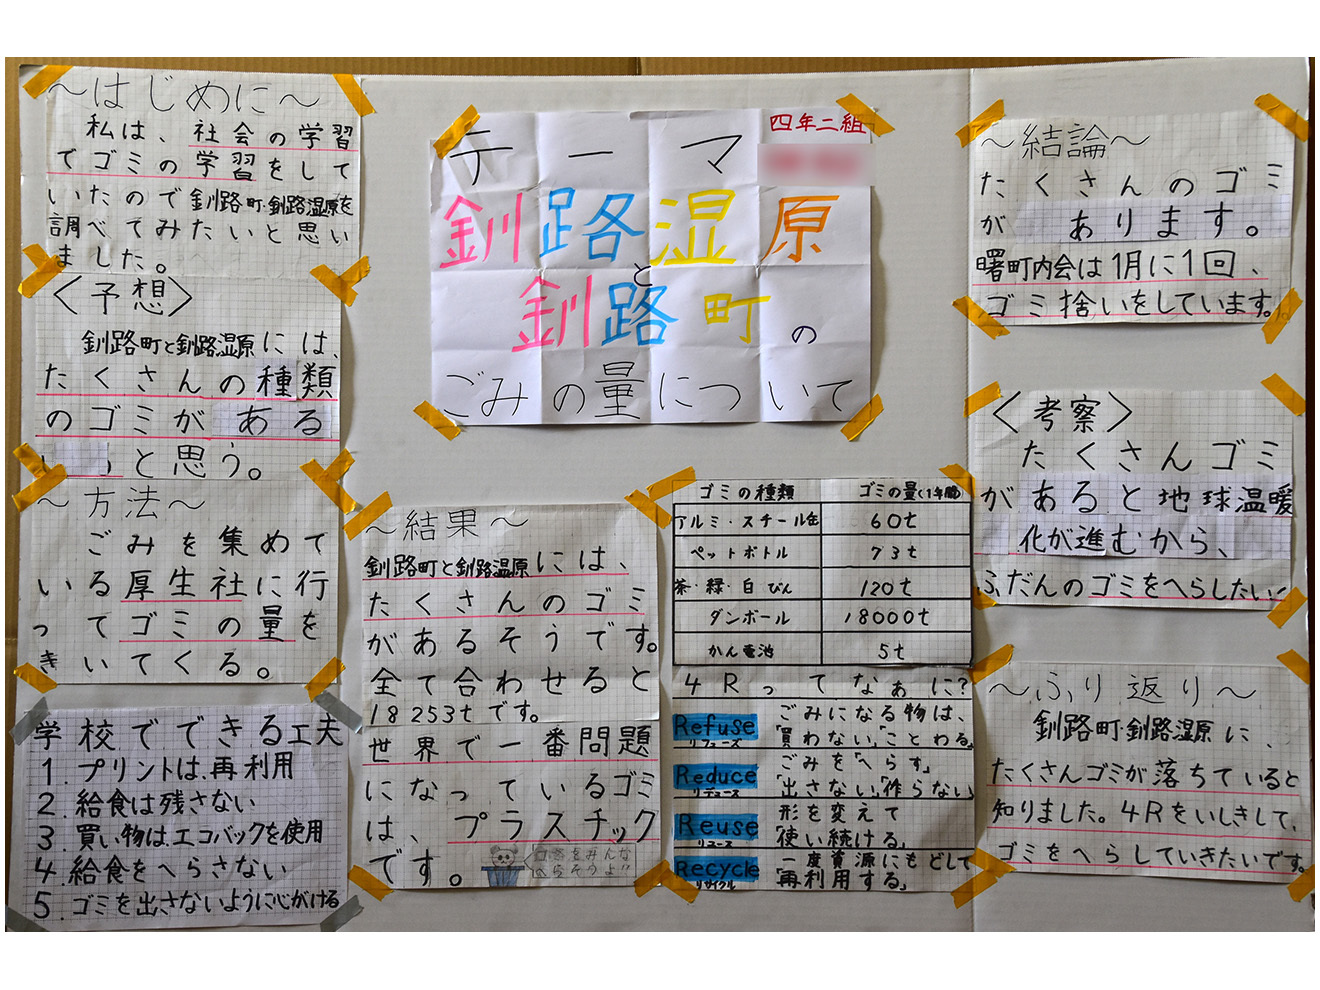 ～はじめに～
私は、社会の学習
でゴミの学習をして
いたので釧路町・釧路湿原を
調べてみたいと思い
ました。
〈予想〉
釧路町と釧路湿原には、
たくさんの種類
のゴミがある
と思う。
～方法～
ごみを集めて
いる厚生社に行
ってゴミの量を
きいてくる。
学校でできる工夫
1.プリントは、再利用
2.給食は残さない
3.買い物はエコバックを使用
4.給食をへらさない
5.ゴミを出さないように心がける
四年二組
テーマ
釧路湿原
と
釧路町の
ごみの量について
～結果～
釧路町と釧路湿原には、
たくさんのゴミ
があるそうです。
全て合わせると
18253tです。
世界で一番問題
になっているゴミ
は、プラスチック
です。
ゴミの種類 ゴミの量(1年間)
アルミ・スチール缶 60t
ペットボトル 73t
茶・緑・白びん 120t
ダンボール 18000t
かん電池 5t
4Rってなぁに?
Refuse リフューズ
ごみになる物は、
「買わない」「ことわる」
Reduce リデュース
ごみを「へらす」
「出さない」「作らない」
Reuse リユース
形を変えて
「使い続ける」
Recycle リサイクル
一度資源にもどして
「再利用する」
～結論～
たくさんのゴミ
があります。
曙町内会は1月に1回、
ゴミ捨いをしています。
〈考察〉
たくさんゴミ
があると地球温暖
化が進むから、
ふだんのゴミをへらしたい!
～ふり返り～
釧路町・釧路湿原に、
たくさんゴミが落ちていると
知りました。4Rをいしきして、
ゴミをへらしていきたいです。